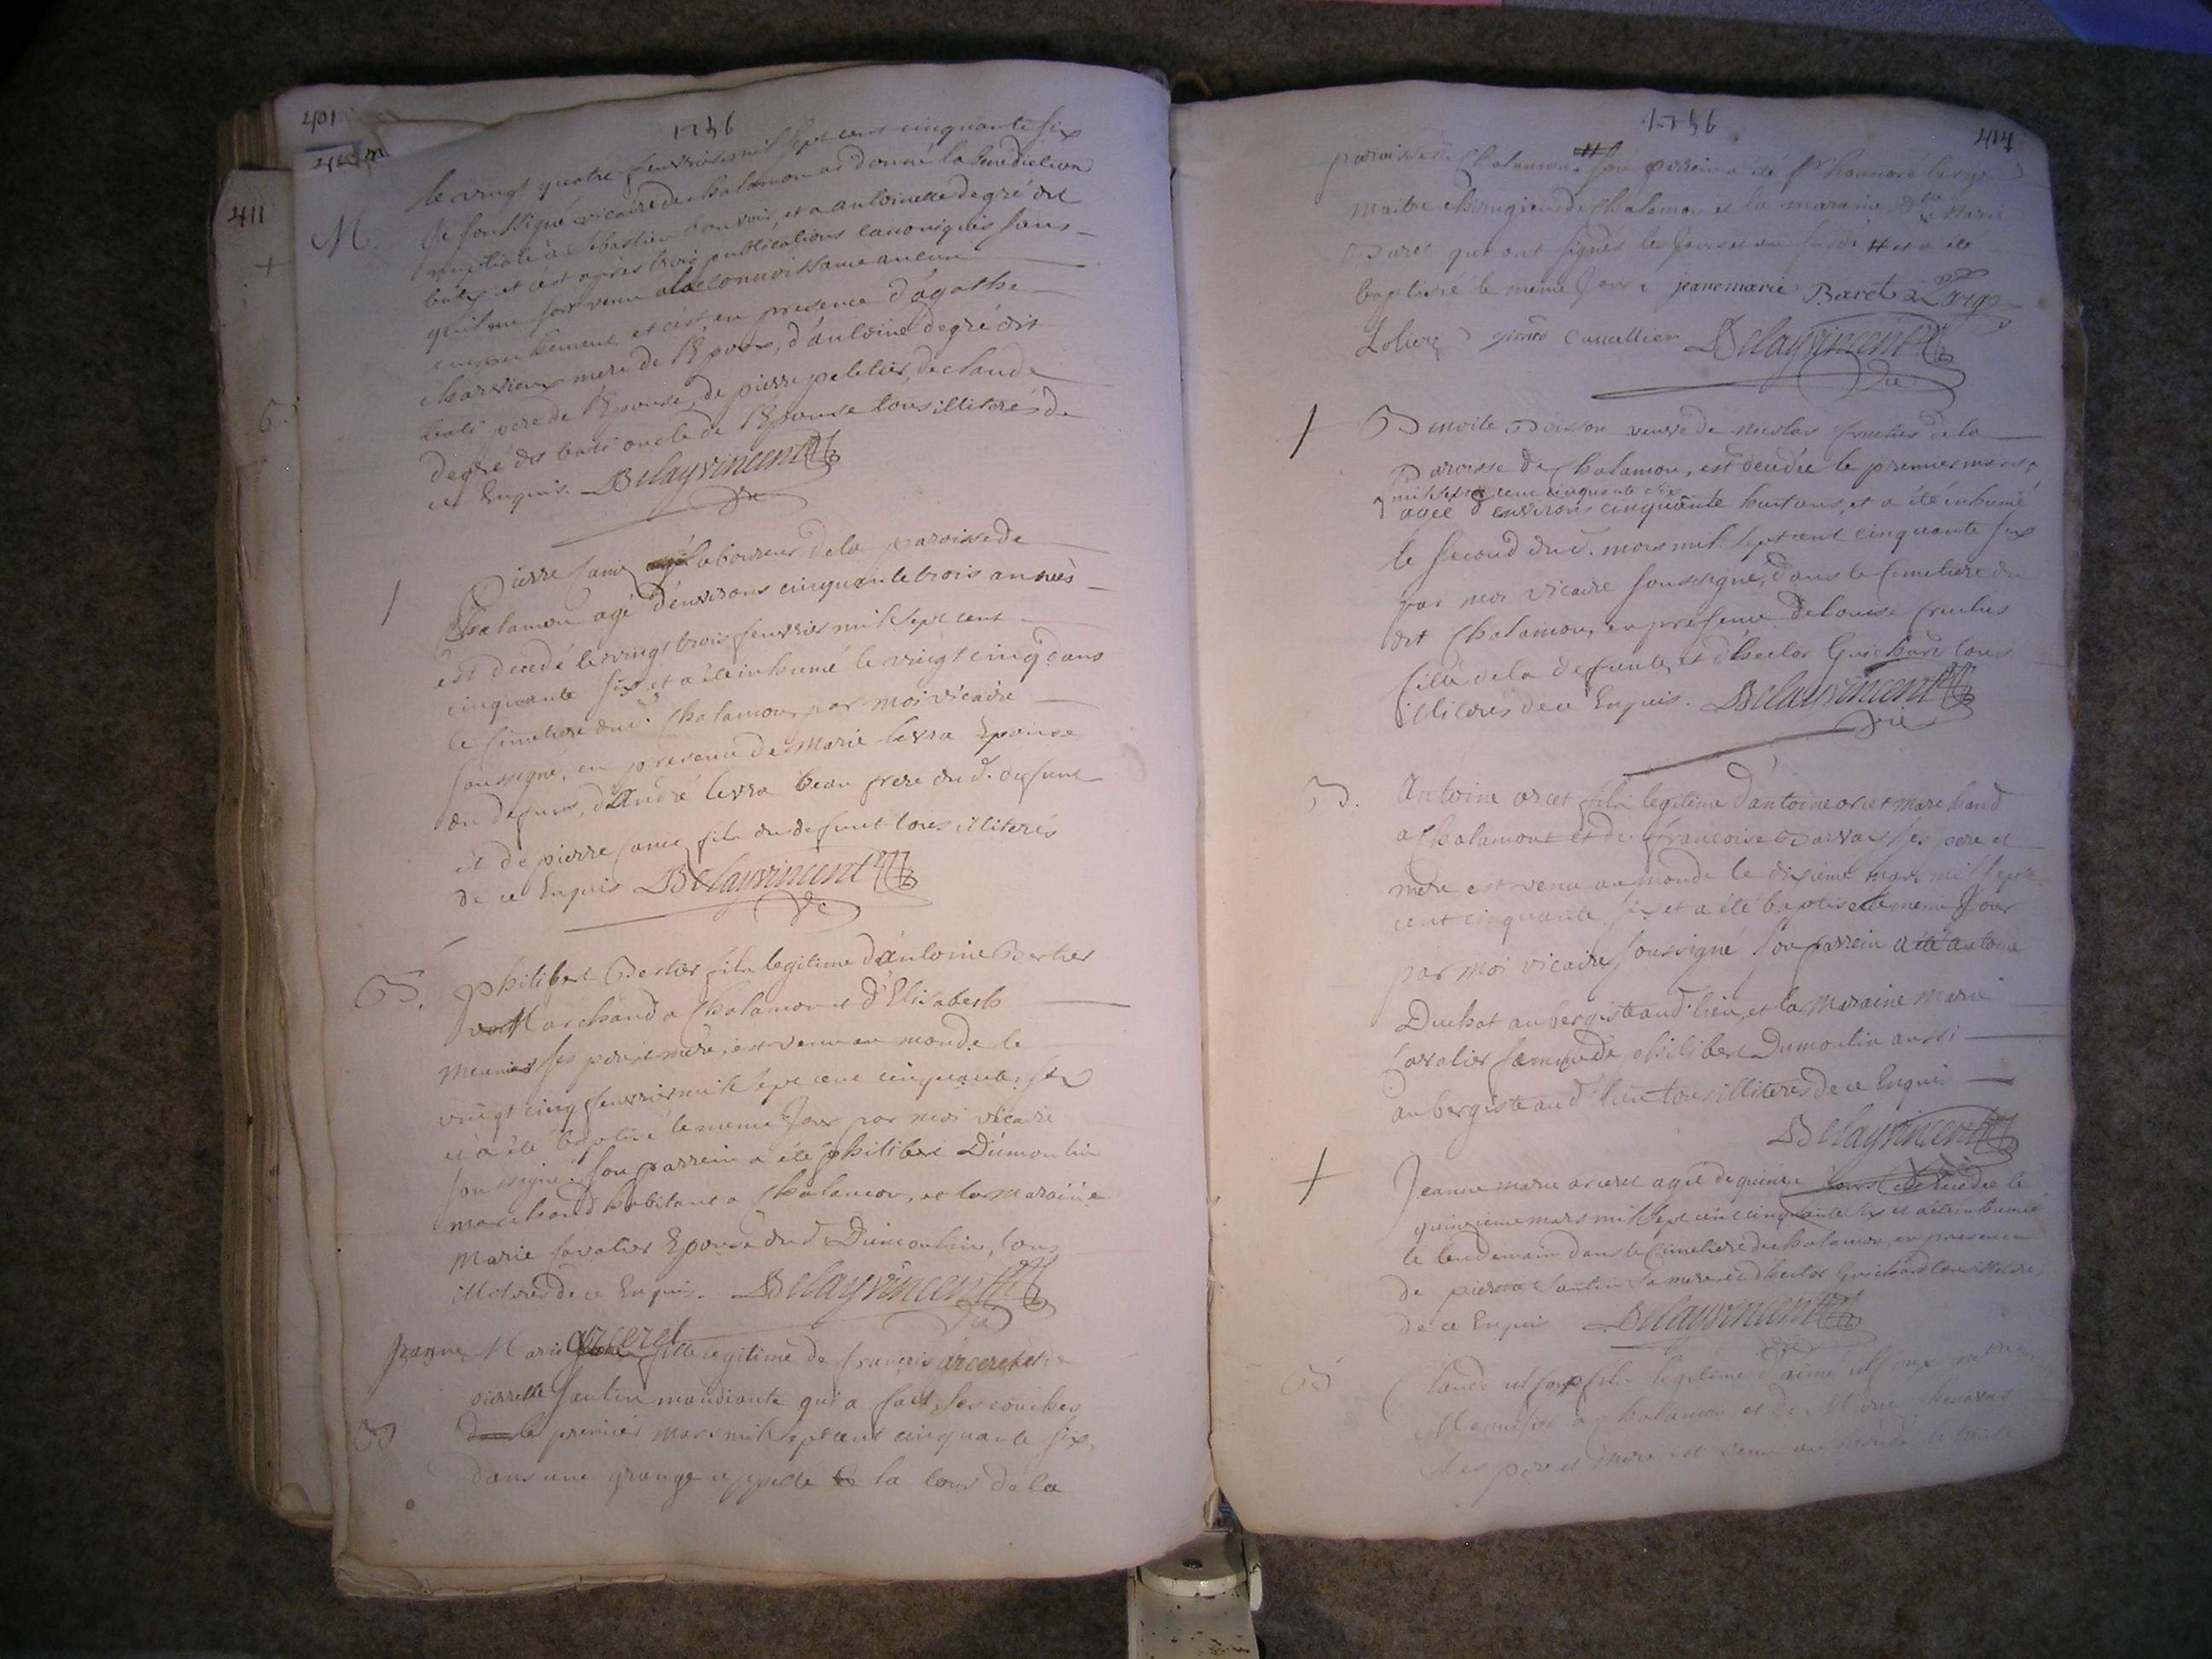 401
411
1756
M.
le vingt quatre fevrier mil sept cent cinquante six
Je soussigné vicaire de chalamon ai donné la benediction
nuptiale à sebastien et a antoinette degré dit
bati et c'est après trois publications canoniques sans
qu'il me soit venu a la connoissance aucun
empechement et c'est en presence d'agathe
mere de l'Epoux, d'antoine degré dit
bati pere de l'Epouse, de pierre peletier, de claude
degré dit bati oncle de l'Epouse tous illiterés de
ce Enquis. Delayvincent vic
Pierre laboureur de la paroisse de
Chalamon agé d'environs cinquante trois années
est decedé le vingt trois fevrier mil sept cent
cinquante six et a été inhumé le vingt cinq dans
le cimetiere dud. Chalamon par moi vicaire
soussigné, en presence de Marie levra Epouse
du defunt, d'André levra beau frere dud. defunt
et de pierre fils du defunt tous illiterés
de ce Enquis Delayvincent vic
B.
philibert Bertier fils legitime d'antoine Bertier
Marchand a Chalamon et d'Elisabeth
meunier ses pere et mere, est venu au monde le
vingt cinq fevrier mil sept cent cinquante six
et a été baptisé le meme Jour par moi vicaire
soussigné. son parrein a été philibert Dumoulin
marchand habitant a Chalamon, et la maraine
Marie Epouse dud. Dumoulin, tous
illiterés de ce Enquis. Delayvincent vic
Jeanne Marie arceret fille legitime de françois arceret et de
pierrette santin mandiante qui a fait ses couches
B
le premier mars mil sept cent cinquante six,
dans une grange appellé la tour de la
1756
414
paroisse de Chalamon # son parrein a été Sr honnoré large
maitre chirugien de Chalamon et la maraine Dlle Marie
Baret qui ont signés les Jours et an susdit # et a été
baptisé le meme Jour jeanemarie Baret Large
Loliere Cauallier Delayvincent vic
Benoite veuve de nicolas de la
Paroisse de Chalamon, est decedée le premier mars
mil sept cent cinquante six
agée d'environs cinquante huit ans, et a été inhumé
le second dud. mois mil sept cent cinquante six
par moi vicaire soussigné, dans le cimetiere du
dit Chalamon, en presence de louise
fille de la defunte, et d'hector Guichard tous
illiterés de ce Enquis. Delayvincent vic
B.
Antoine arcet fils legitime d'antoine arcet marchand
a Chalamont et de françoise ses pere et
mere est venu au monde le dixieme mars mil sept
cent cinquante six et a été baptisé le meme Jour
par moi vicaire soussigné son parrein a été antoine
Duchat aubergiste aud. lieu, et la Maraine Marie
femme de philibert Dumoulin aussi
aubergiste aud. lieu tous illiterés de ce Enquis
Delayvincent
Jeanne marie arceret agée de quinze jours est decedée le
quinzieme mars mil sept cent cinquante six et a été inhumée
le lendemain dans le cimetiere de chalamon, en presence
de santin sa mere, et d'hector Guichard tous illiteré
de ce Enquis Delayvincent vic
B
Claude fils legitime d'aimé
Menuisier a chalamon et de Marie
ses pere et mere est venu au monde le